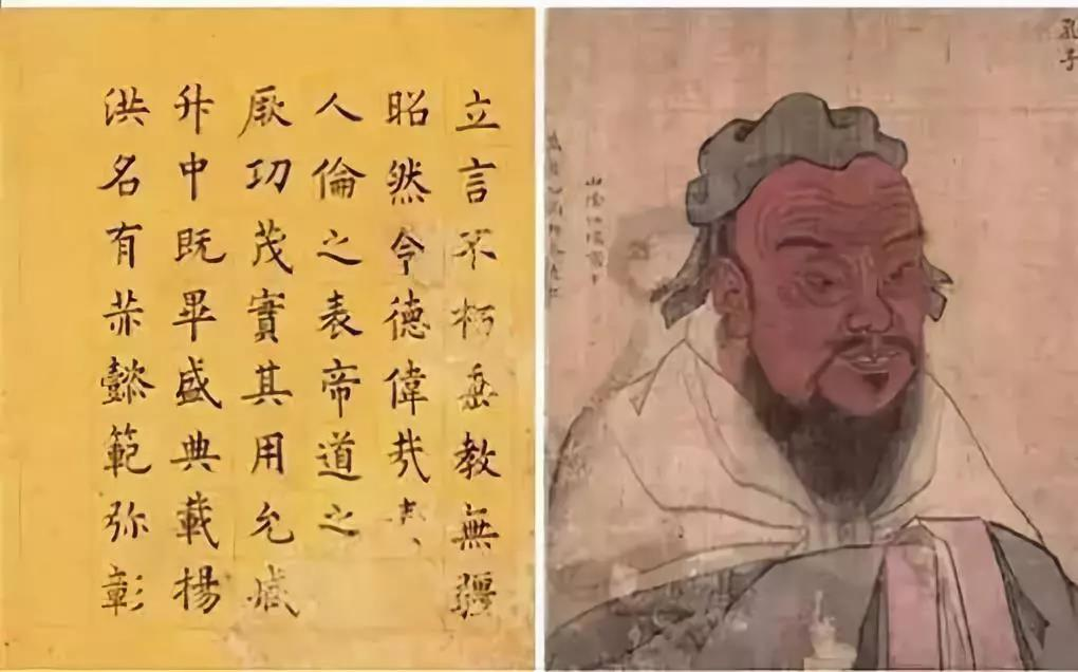 立言不朽垂教無疆
昭然令德偉哉
人倫之表帝道之
厥功茂實其用允臧
升中既畢盛典載楊
洪名有赫懿範弥彰
孔子